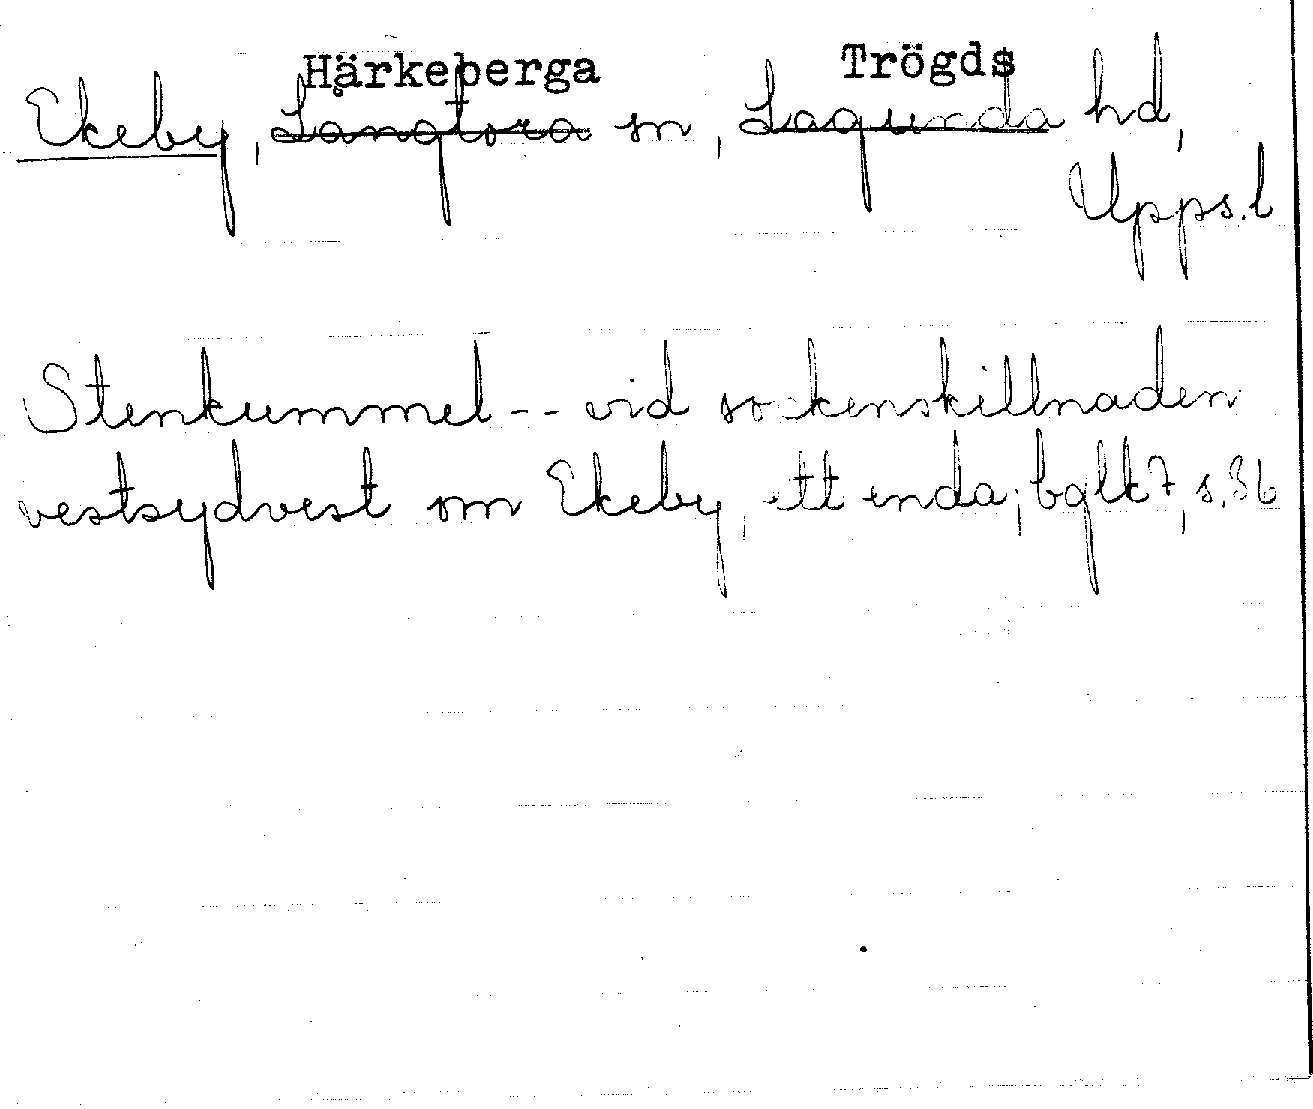 Härkeberga Trögds
Ekeby, Långtora sn, Lagunda hd,
Upps.l
Stenkummel -- vid sockenskillnaden
vestsydvest om Ekeby, ett enda; bglk 7, s. 36